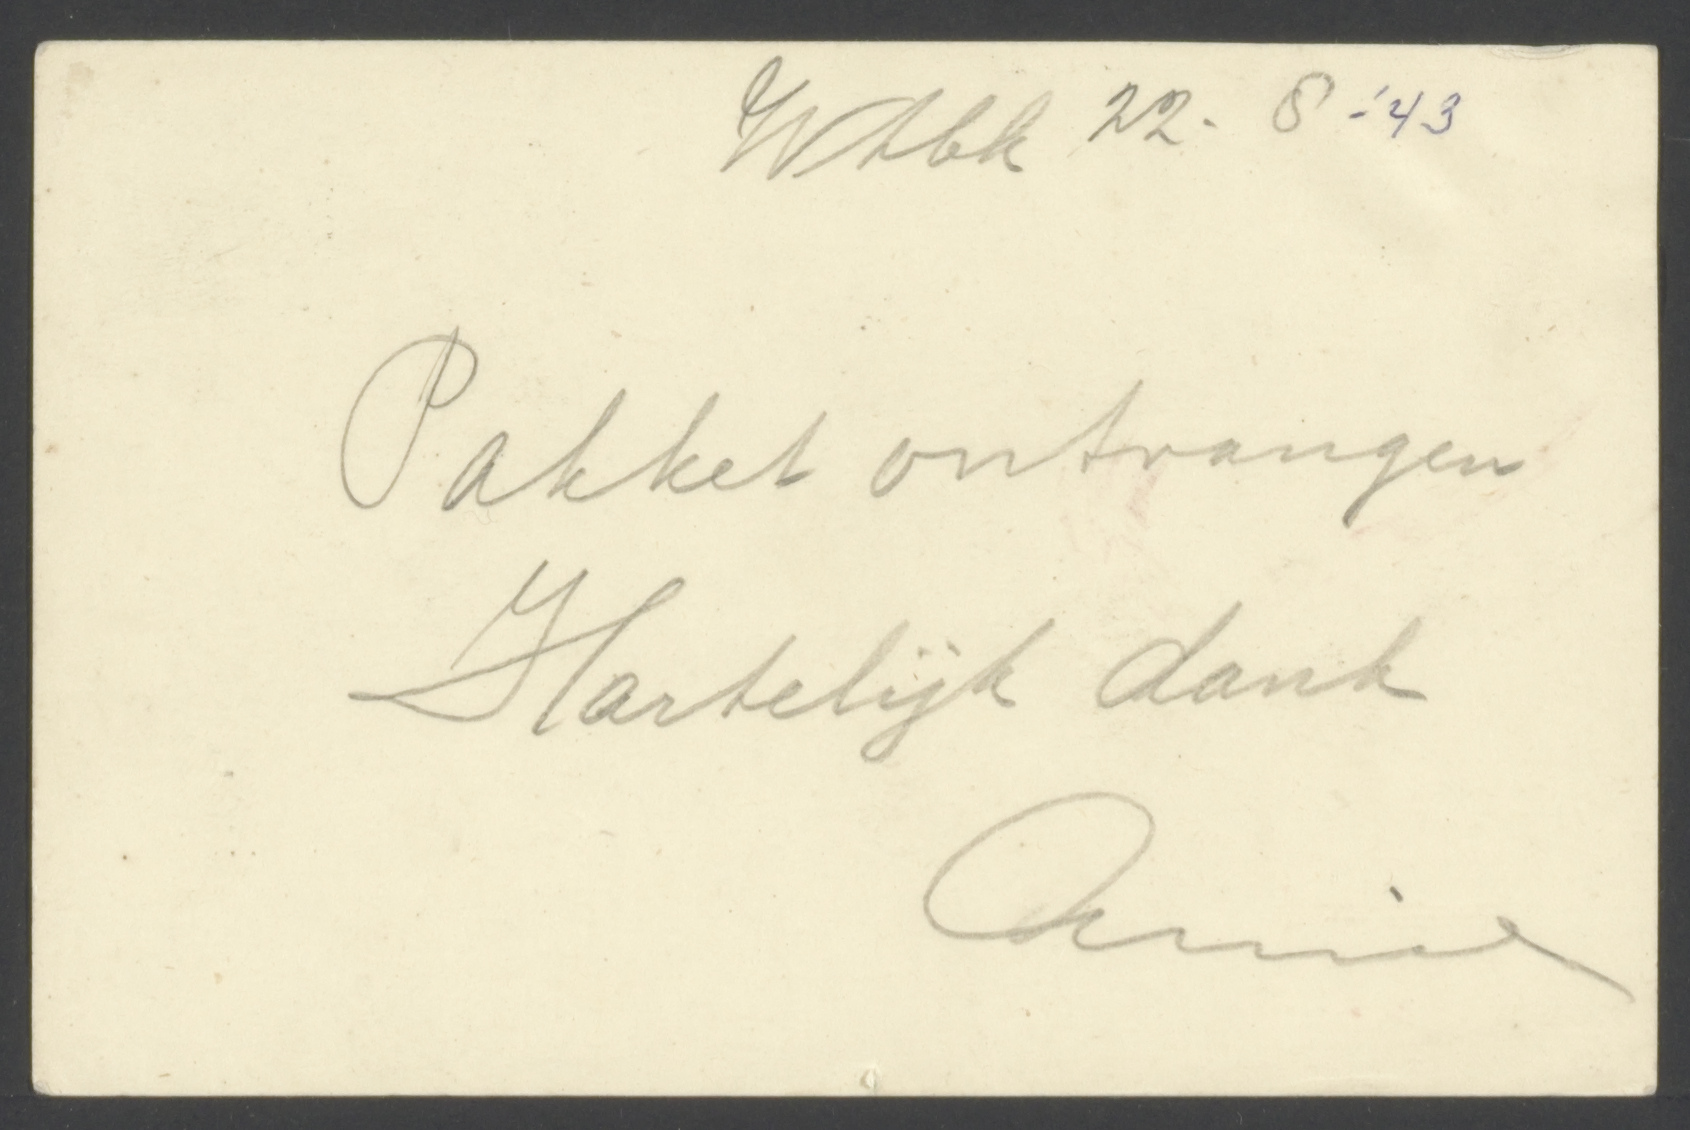 Wtbk 22-8-'43
Pakket ontvangen
Hartelijk dank
Annie